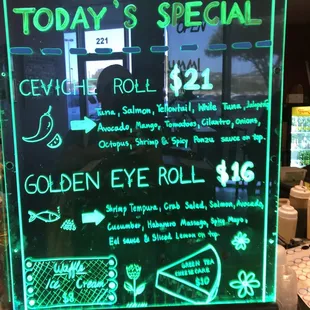 TODAY'S SPECIAL
221
OPEN
CEVICHE ROLL $21
Tuna, Salmon, Yellowtail, White Tuna, Jalapeño
Avocado, Mango, Tomatoes, Cilantro, Onions,
Octopus, Shrimp & Spicy Ponzu sauce on top.
GOLDEN EYE ROLL $16
Shrimp Tempura, Crab Salad, Salmon, Avocado,
Cucumber, Habanero Massago, Spice Mayo,
Eel sauce & Sliced Lemon on top
Waffle
Ice Cream
$8
GREEN TEA
CHEESECAKE
$10